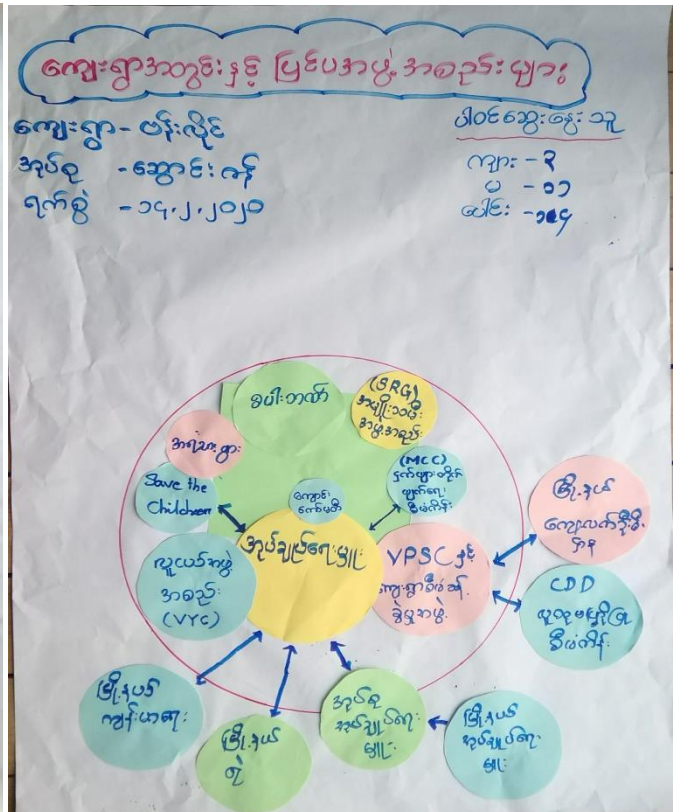 ကျေးရွာအတွင်းနှင့် ပြင်ပအဖွဲ့အစည်းများ
ကျေးရွာ - ဗန်းလိုင်
အုပ်စု - ဆောင်းကန်
ရက်စွဲ - ၁၄.၂.၂၀၂၀
ပါဝင်ဆွေးနွေးသူ
ကျား - ၃
မ - ၁၁
ပေါင်း - ၁၄
စပါးဘဏ်
(SRG)
အမျိုးသမီး
အဖွဲ့အစည်း
အရံသားဖွား
Save the
Children
ကျောင်း
ကော်မတီ
(MCC)
ငှက်ဖျားတိုက်
ဖျက်ရေး
စီမံကိန်း
လူငယ်အဖွဲ့
အစည်း
(VYC)
အုပ်ချုပ်ရေးမှူး
VPSC နှင့်
ကျေးရွာစီမံခန့်
ခွဲမှုအဖွဲ့
မြို့နယ်
ကျေးလက်ဦးစီး
ဌာန
CDD
လူထုဗဟိုပြု
စီမံကိန်း
မြို့နယ်
ကျန်းမာရေး
မြို့နယ်
ရဲ
အုပ်စု
အုပ်ချုပ်ရေး
မှူး
မြို့နယ်
အုပ်ချုပ်ရေး
မှူး